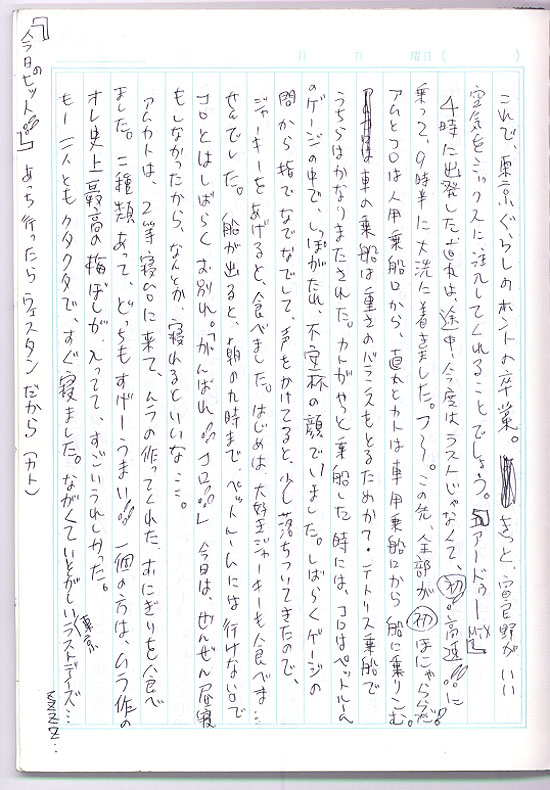 月 日 曜日 ( )
これで、東京ぐらしのホントの卒業。きっと、富良野がいい
空気をミックスに注入してくれることでしょう。『アードゥー MIX』
4時に出発した直丸は、途中、今度はラストじゃなくて、初!高速!!に
乗って、9時半に大洗に着きました。フ〜。この先、全部が初ほにゃららだ!
アムとコロは人用乗船口から、直丸とカトは車用乗船口から船に乗りこむ。
は車の乗船は重さのバランスもとるためかて・テトリス乗船で
うちらはかなりまたされた。カトがやっと乗船した時には、コロはペットルーム
のゲージの中で、しっぽがたれ、不安一杯の顔でいました。しばらくゲージの
間から指でなでなでして、声をかけてると、少し落ちついてきたので、
ジャーキーをあげると、食べました。はじめは、大好王ジャーキーも食べま…
せんでした。船が出ると、朝の九時まで、ペットルームには行けないので
コロとはしばらくお別れ。「がんばれ!!コロ!!」今日は、ぜんぜん昼寝
もしなかったから、なんとか、寝れるといいな…。
アムカトは、2等寝台に来て、ムラの作ってくれた、おにぎりを食べ
ました。二種類あって、どっちもすげーうまい!!一個の方は、ムラ作の
オレ史上最高の梅ぼしが入ってて、すごいうれしかった。
もー二人ともクタクタで、すぐ寝ました。ながくていとがしい東京ラストデイズ… zzzz…
『今日のヒット!!』 あっち行ったらウェスタンだから (カト)